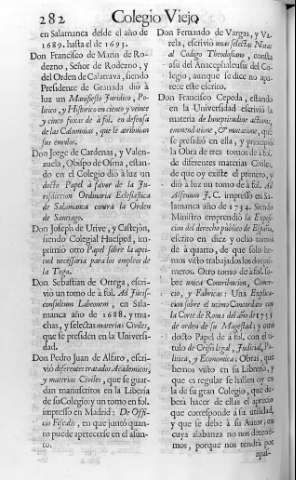 282 Colegio Viejo
en Salamanca desde el año de
1689. hasta el de 1693.
Don Francisco de Marin de Rodezno, Señor de Rodezno, y
del Orden de Calatrava, siendo
Presidente de Granada dió à
luz un Manifiesto Juridico, Politico, y Historico en ciento y veinte
y cinco fojas de à fol. en defensa
de las Calumnias, que le atribuian
sus emulos.
Don Jorge de Cardenas, y Valenzuela, Obispo de Osma, estando en el Colegio dió à luz un
docto Papel à favor de la Jurisdiccion Ordinaria Eclesiastica
de Salamanca contra la Orden
de Santiago.
Don Joseph de Urive, y Castejon,
siendo Colegial Huesped, imprimiò otro Papel sobre la
necesaria para los empleos de
la Toga.
Don Sebastian de Ortega, escrivió un tomo de à fol. Ad
Labeonem, en Salamanca año de 1688. y muchas, y selectas materias Civiles,
que se presiden en la Universidad.
Don Pedro Juan de Alfaro, escrivió diferentes tratados Academicos,
y materias Civiles, que se guardan manuscritos en la Libreria
de su Colegio y un tomo en fol.
impresso en Madrid: De Officio Fiscalis, en que juntó quanto puede apetecerse en el asunto.
Don Fernando de Vargas, y Varela, escrivió unas selectas Notas
al Codigo Theodosiano, consta
del Anacephaleosis del Colegio, aunque se dice no aparece este escrito.
Don Francisco Cepeda, estando
en la Universidad escrivió la
materia de Inospitudine actione,
emendatione, & mutatione, que
se presidió en ella, y principió
la Obra de tres tomos de à fol.
de diferentes materias Civiles, de que oy existe el primero, y
dió à luz un tomo de à fol. Ad
Alfenum J. C. impresso en Salamanca año de 1734. Siendo
Ministro emprendió la Exposicion del derecho público de España,
escrito en diez y ocho tomos
de à quarto, de que solo hemos visto trabajados los dos primeros. Otro tomo de à fol. sobre unica Contribucion, Comercio, y Fabricas: Una Explicacion sobre el ultimo Concordato con
la Corte de Roma del año de 1753
de orden de su Magestad: y otro
docto Papel de à fol. con el titulo de Crisis legal, Juridica, Politica, y Economica: Obras, que
hemos visto en su Libreria, y
que es regular se hallen oy en
la de su gran Colegio, que deberà hacer de ellas el aprecio
que corresponde à su utilidad,
y que se debe à su Autor, en
cuya alabanza no nos detenemos, porque nos tendrà por